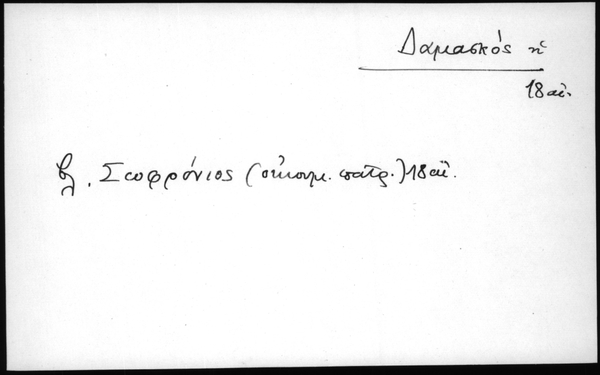 Δαμασκός ἡ
18 αἰ.
βλ. Σωφρόνιος (οἰκουμ. πατρ.) 18 αἰ.